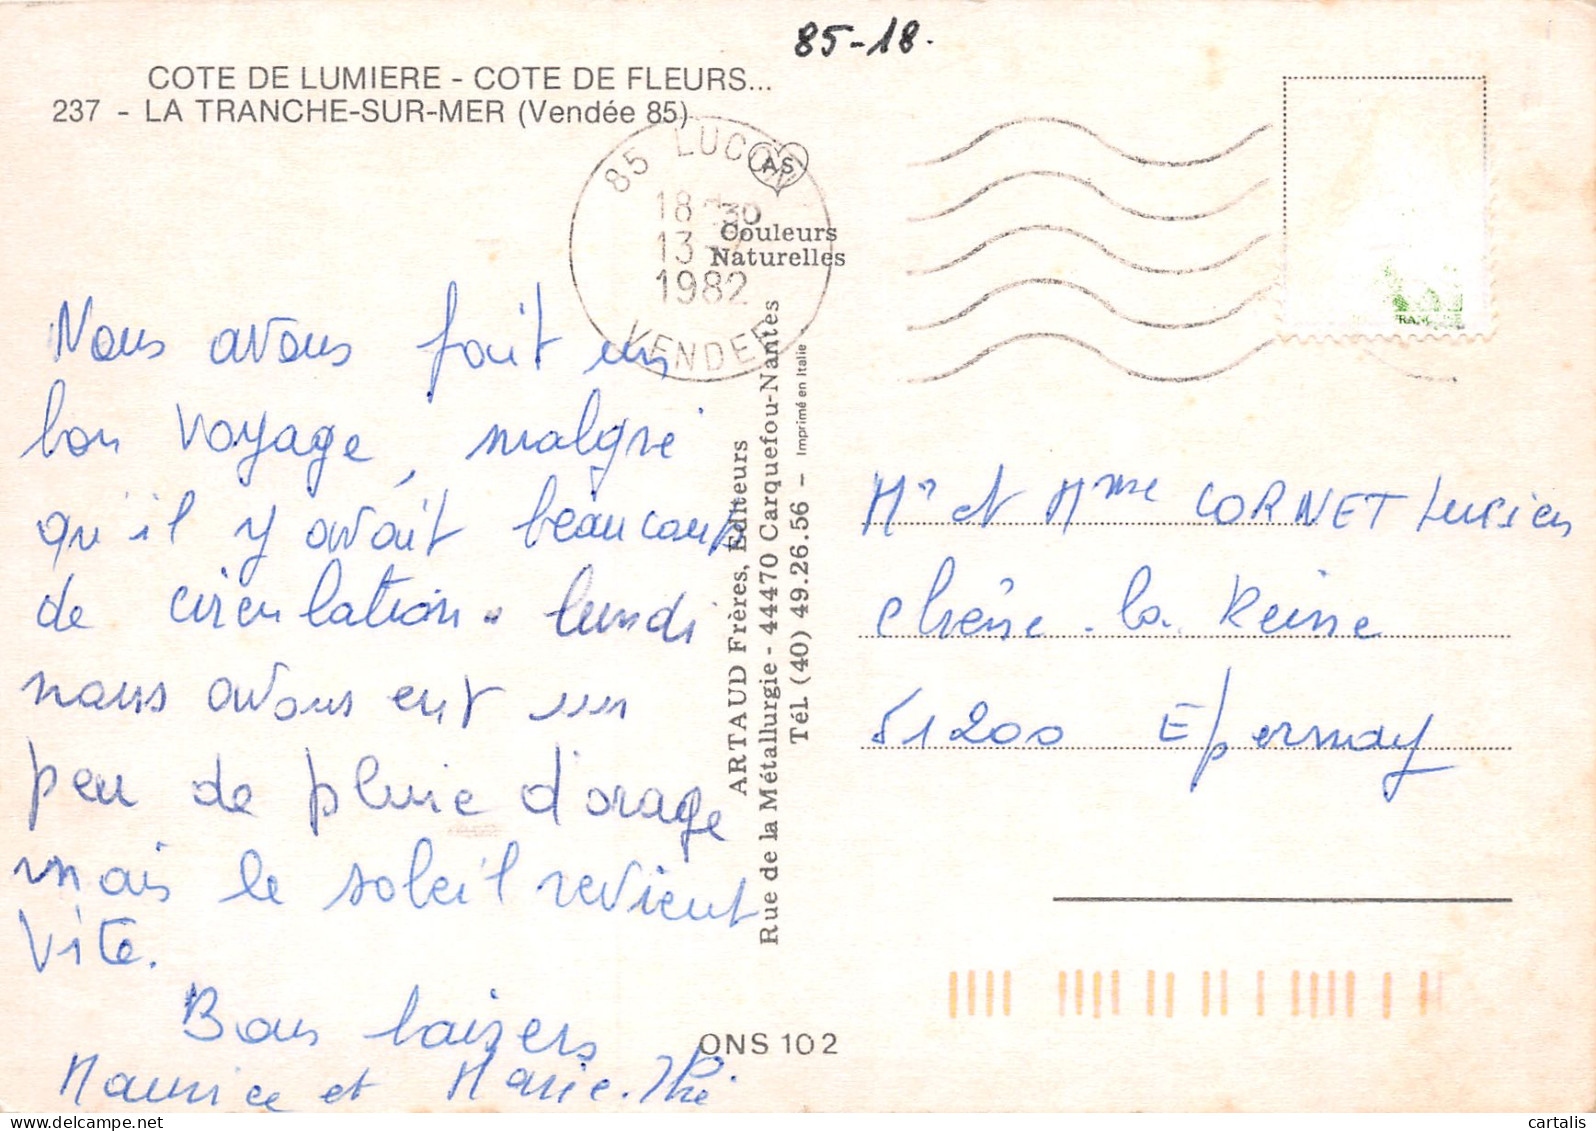 85-18.
COTE DE LUMIERE - COTE DE FLEURS...
237 - LA TRANCHE-SUR-MER (Vendée 85)
85 LUCON
18 30
13-7
1982
VENDEE
AS
Couleurs
Naturelles
Nous avons fait un
bon voyage, malgré
qu'il y avait beaucoup
de circulation. lundi
nous avons eut un
peu de pluie d'orage
mais le soleil revient
vite.
Bons baisers
Maurice et Marie.Thé
ARTAUD Frères, Editeurs
Rue de la Métallurgie - 44470 Carquefou-Nantes
Tél. (40) 49.26.56 - Imprimé en Italie
Mr et Mme CORNET Lucien
Chêne-la-Reine
51200 Epernay
ONS 102
cartalis